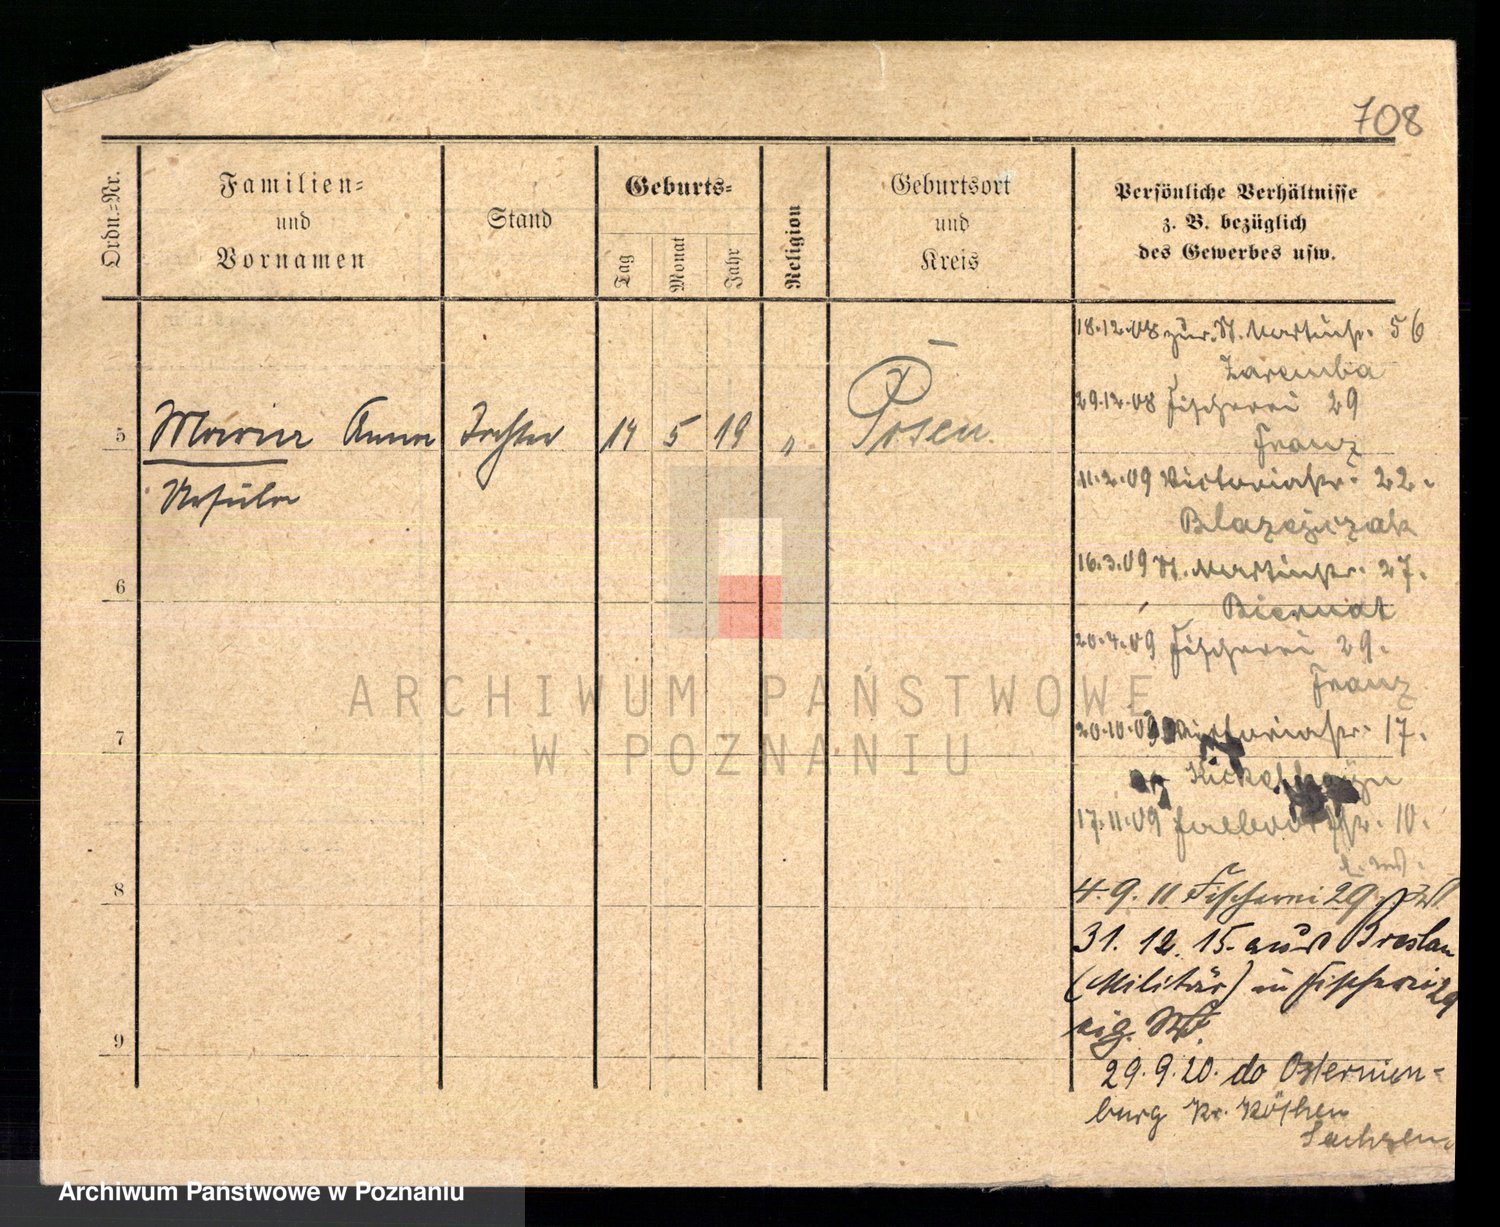 708
Ordn.-Nr.
Familien-
und
Vornamen
Stand
Geburts-
Tag
Monat
Jahr
Religion
Geburtsort
und
Kreis
Persönliche Verhältnisse
z. B. bezüglich
des Gewerbes usw.
5
Maria Anna
Ursula
Tochter
14
5
19
"
Posen.
6
7
8
9
18.12.08 zur. St. Martinstr. 56
Zaremba
29.12.08 Fischerei 29
Franz
11.2.09 Victoriastr. 22.
Blazejczak
16.3.09 St. Martinstr. 27.
Biernat
20.4.09 Fischerei 29.
Franz
20.10.09 Victoriastr. 17.
17.11.09 str. 10.
4.9.11 Fischerei 29
31. 12. 15. aus Breslau
(Militär) in Fischerei 29
eig. W.
29.9.20. do Osternien-
burg Kr. Köthen
Sachsen
ARCHIWUM PAŃSTWOWE
W POZNANIU
Archiwum Państwowe w Poznaniu